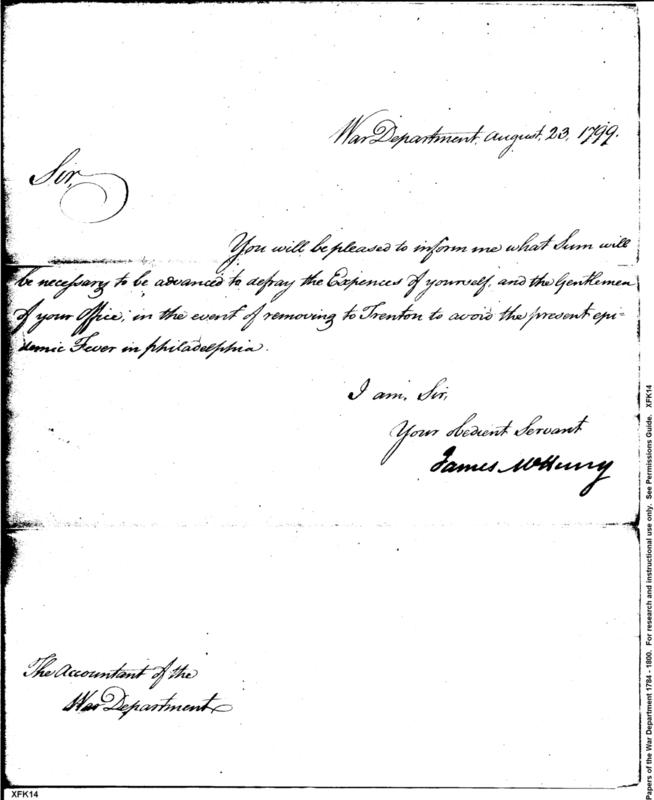 War Department, August, 23, 1799.
Sir,
You will be pleased to inform me what Sum will
be necessary to be advanced to defray the Expences of yourself, and the Gentlemen
of your Office, in the event of removing to Trenton to avoid the present epi=
demic Fever in philadelphia.
I am, Sir,
Your obedient Servant
James McHenry
The Accountant of the
War Department
XFK14
Papers of the War Department 1784 - 1800. For research and instructional use only. See Permissions Guide. XFK14